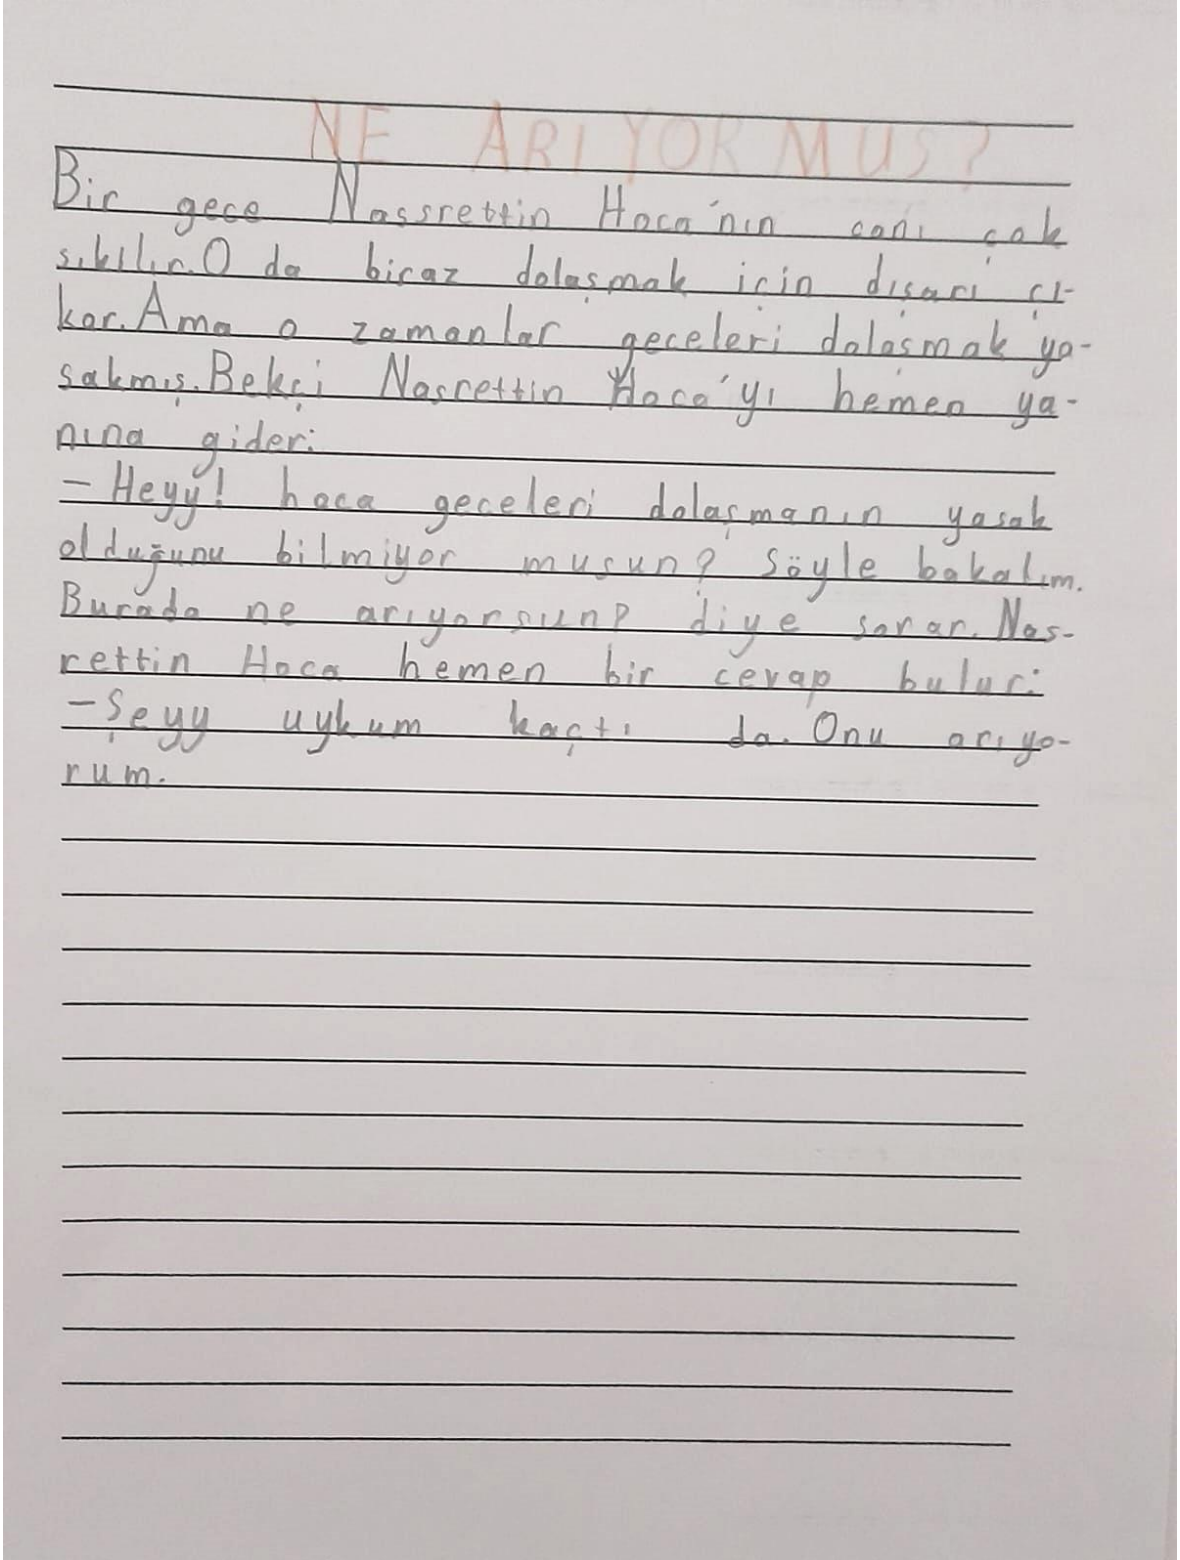 NE ARIYORMUŞ?
Bir gece Nassrettin Hoca'nın canı çok
sıkılır. O da biraz dolaşmak için dışarı çı-
kar. Ama o zamanlar geceleri dolaşmak ya-
sakmış. Bekçi Nasrettin Hoca'yı hemen ya-
nına gider:
- Heyy! hoca geceleri dolaşmanın yasak
olduğunu bilmiyor musun? Söyle bakalım.
Burada ne arıyorsun? diye sorar. Nas-
rettin Hoca hemen bir cevap bulur:
- Şeyy uykum kaçtı da. Onu arıyo-
rum.